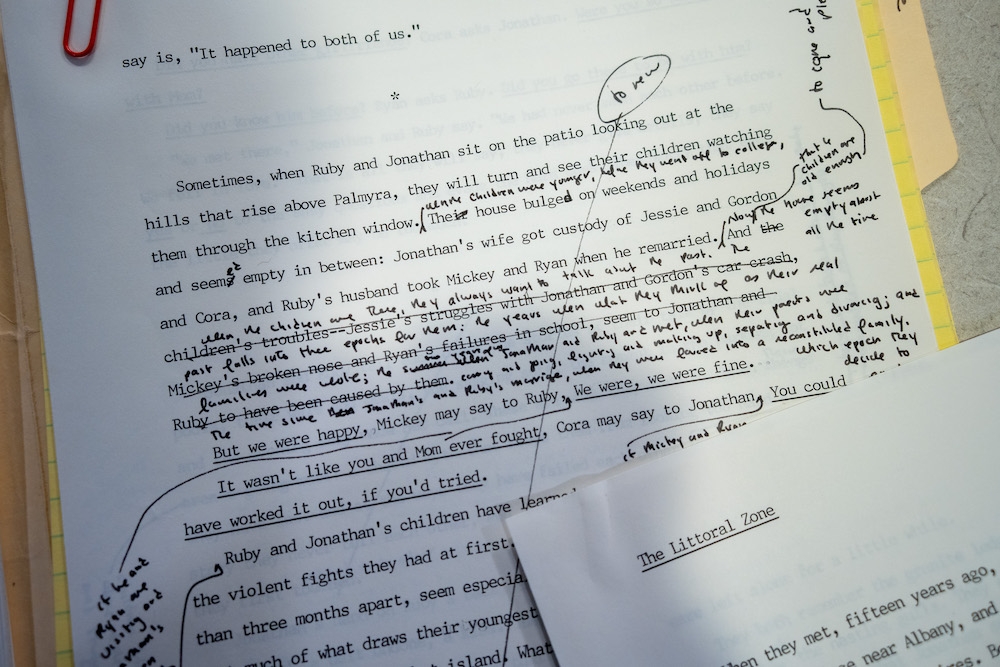 say is, "It happened to both of us."
*
to new
Sometimes, when Ruby and Jonathan sit on the patio looking out at the
hills that rise above Palmyra, they will turn and see their children watching
when the children were younger, before they went off to college,
them through the kitchen window. Their house bulged on weekends and holidays
that the children are
old enough
and seemed empty in between: Jonathan's wife got custody of Jessie and Gordon
Now the house seems
empty almost
all the time
and Cora, and Ruby's husband took Mickey and Ryan when he remarried. And the
when the children are there, they always want to talk about the past. The
children's troubles--Jessie's struggles with Jonathan and Gordon's car crash,
past falls into three epochs for them: the years when what they think of as their real
Mickey's broken nose and Ryan's failures in school, seem to Jonathan and
families were whole; the Jonathan and Ruby had met, when their parents were
coming and going, fighting and making up, separating and divorcing; and
Ruby to have been caused by them.
the time since Jonathan's and Ruby's marriage, when they were forced into a reconstituted family.
which epoch they
decide to
But we were happy, Mickey may say to Ruby, We were, we were fine.
It wasn't like you and Mom ever fought, Cora may say to Jonathan, You could
have worked it out, if you'd tried.
if Mickey and Ryan
Ruby and Jonathan's children have learned
the violent fights they had at first.
than three months apart, seem especia
much of what draws their youngest
island. What
if he and
Ryan are
The Littoral Zone
hen they met, fifteen years ago,
near Albany, and